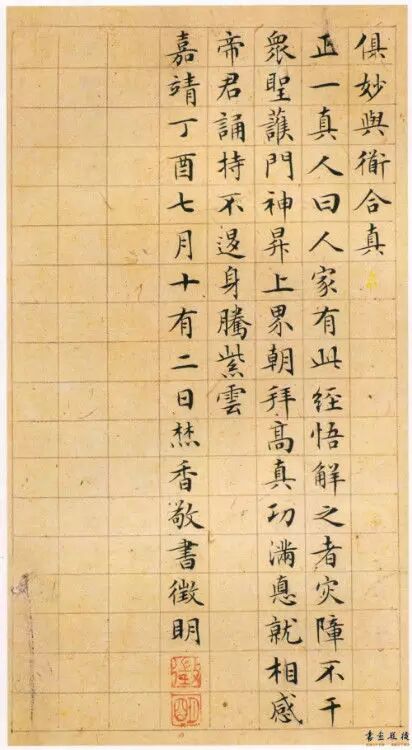 俱妙與衜合真
正一真人曰人家有此經悟解之者灾障不干
衆聖護門神昇上界朝拜高真功滿悳就相感
帝君誦持不退身騰紫雲
嘉靖丁酉七月十有二日焚香敬書徵明